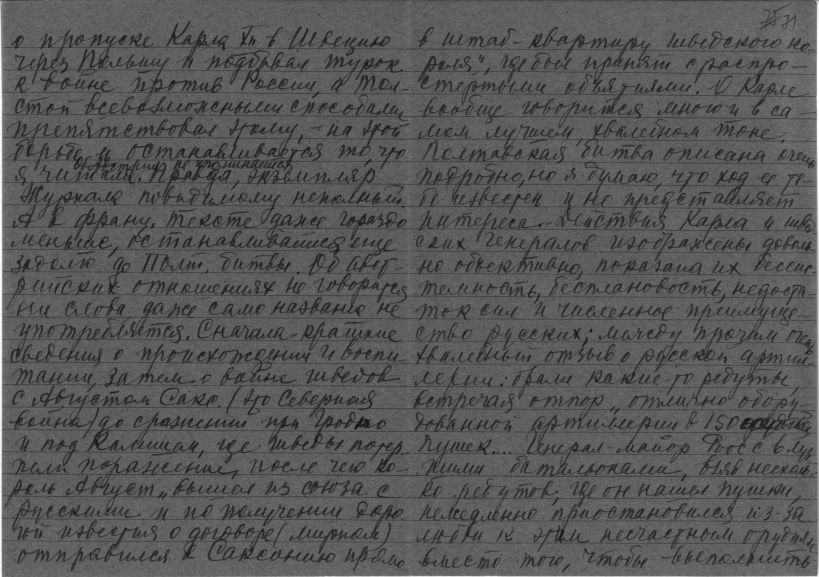 о пропуске Карла XII в Швецию
через Польшу и подбивал турок
к войне против России, а Тол-
стой всевозможными способами
препятствовал этому, - на этой
борьбе и останавливается то, что
я читала. Правда, экземпляр
Журнала повидимому неполный.
А в франц. тексте даже гораздо
меньше, останавливается еще
задолго до Полт. битвы. Об авст-
рийских отношениях не говорится
ни слова даже само название не
употребляется. Сначала краткие
сведения о происхождении и воспи-
тании, затем о войне шведов
с Августом Сакс. (это Северная
война) до сражений при Гродно
и под Калишем, где шведы потер
пели поражение, после чего ко-
роль Август „вышел из союза с
русскими и по получении доро
гой известия о договоре (мирном)
отправился в Саксонию прямо
71
в штаб-квартиру шведского ко-
роля", где был принят с распро-
стертыми объятиями. О Карле
вообще говорится много и в са-
мом лучшем, хвалебном тоне.
Полтавская битва описана очень
подробно, но я думаю, что ход ее те-
бе известен и не представляет
интереса. Действия Карла и швед
ских генералов изображены доволь
но объективно, показана их бессис-
темность, бесплановость, недоста-
ток сил и численное преимуще
ство русских; между прочим очень
хвалебный отзыв о русской артил
лерии: брали какие-то редуты,
встречая отпор „отлично обору-
дованной артиллерии в 150
пушек.... Генерал-майор Роос с 6 луч
шими батальонами, взяв несколь-
ко редутов, где он нашел пушки,
немедленно приостановился из-за
любви к этим несчастным орудиям
вместо того, чтобы выполнить